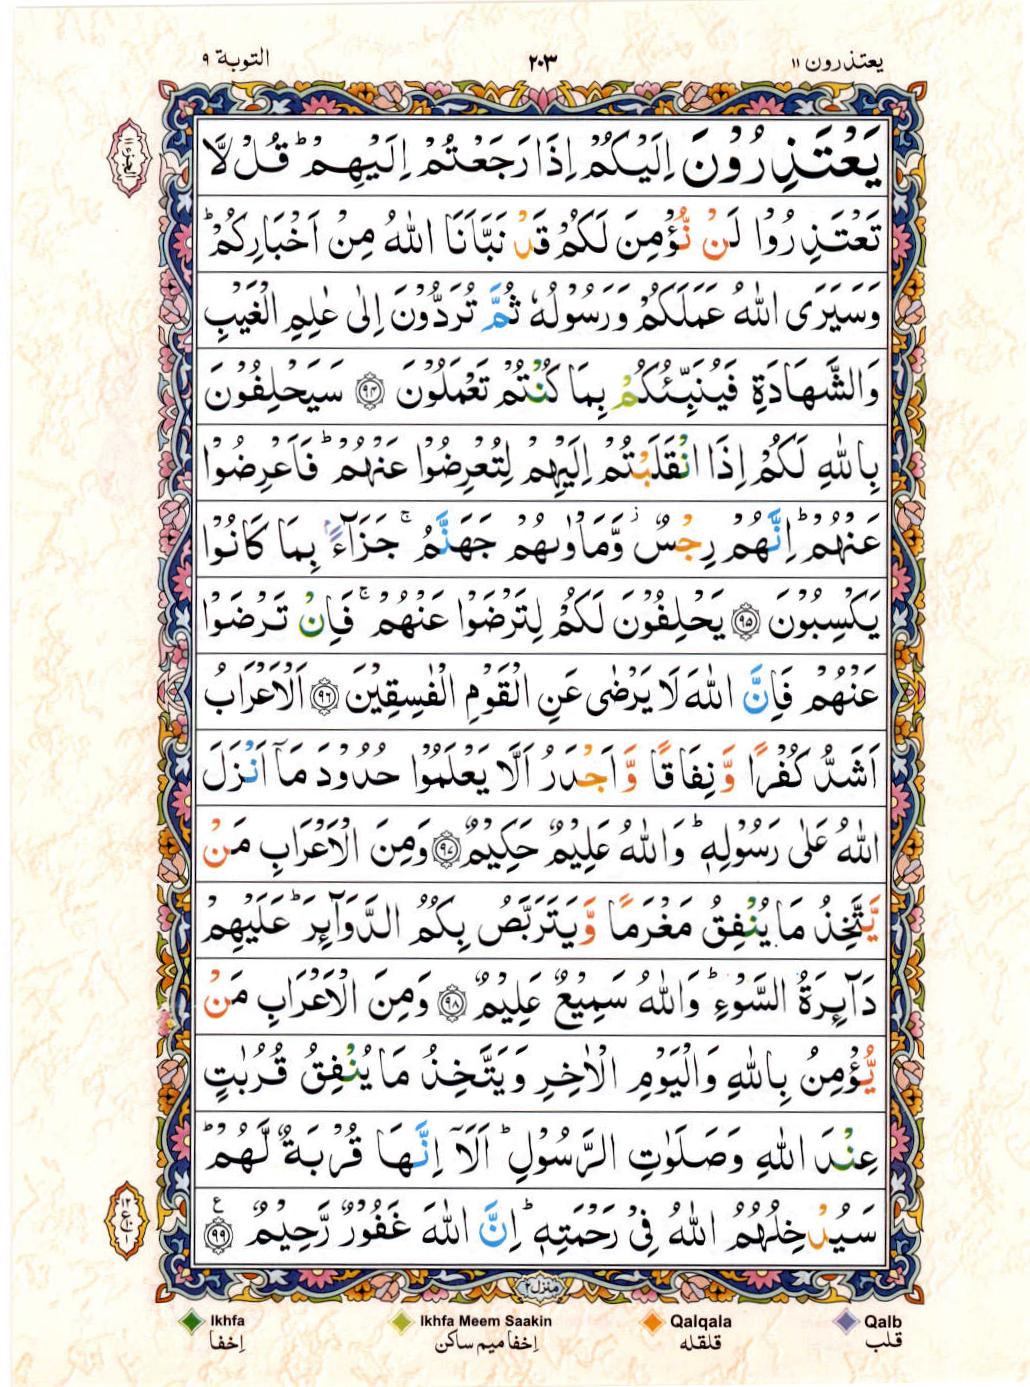 التوبة ٩
٢٠٣
يعتذرون ١١
يَعْتَذِرُوْنَ اِلَيْكُمْ اِذَا رَجَعْتُمْ اِلَيْهِمْ ؕ قُلْ لَّا
تَعْتَذِرُوْا لَنْ نُّؤْمِنَ لَكُمْ قَدْ نَبَّاَنَا اللّٰهُ مِنْ اَخْبَارِكُمْ ؕ
وَسَيَرَى اللّٰهُ عَمَلَكُمْ وَرَسُوْلُهٗ ثُمَّ تُرَدُّوْنَ اِلٰى عٰلِمِ الْغَيْبِ
وَالشَّهَادَةِ فَيُنَبِّئُكُمْ بِمَا كُنْتُمْ تَعْمَلُوْنَ ﴿۹۴﴾ سَيَحْلِفُوْنَ
بِاللّٰهِ لَكُمْ اِذَا انْقَلَبْتُمْ اِلَيْهِمْ لِتُعْرِضُوْا عَنْهُمْ ؕ فَاَعْرِضُوْا
عَنْهُمْ ؕ اِنَّهُمْ رِجْسٌ ؗ وَّمَاْوٰىهُمْ جَهَنَّمُ ۚ جَزَآءًۢ بِمَا كَانُوْا
يَكْسِبُوْنَ ﴿۹۵﴾ يَحْلِفُوْنَ لَكُمْ لِتَرْضَوْا عَنْهُمْ ۚ فَاِنْ تَرْضَوْا
عَنْهُمْ فَاِنَّ اللّٰهَ لَا يَرْضٰى عَنِ الْقَوْمِ الْفٰسِقِيْنَ ﴿۹۶﴾ اَلْاَعْرَابُ
اَشَدُّ كُفْرًا وَّنِفَاقًا وَّاَجْدَرُ اَلَّا يَعْلَمُوْا حُدُوْدَ مَاۤ اَنْزَلَ
اللّٰهُ عَلٰى رَسُوْلِهٖ ؕ وَاللّٰهُ عَلِيْمٌ حَكِيْمٌ ﴿۹۷﴾ وَمِنَ الْاَعْرَابِ مَنْ
يَّتَّخِذُ مَا يُنْفِقُ مَغْرَمًا وَّيَتَرَبَّصُ بِكُمُ الدَّوَآئِرَ ؕ عَلَيْهِمْ
دَآئِرَةُ السَّوْءِ ؕ وَاللّٰهُ سَمِيْعٌ عَلِيْمٌ ﴿۹۸﴾ وَمِنَ الْاَعْرَابِ مَنْ
يُّؤْمِنُ بِاللّٰهِ وَالْيَوْمِ الْاٰخِرِ وَيَتَّخِذُ مَا يُنْفِقُ قُرُبٰتٍ
عِنْدَ اللّٰهِ وَصَلَوٰتِ الرَّسُوْلِ ؕ اَلَاۤ اِنَّهَا قُرْبَةٌ لَّهُمْ ؕ
سَيُدْخِلُهُمُ اللّٰهُ فِىْ رَحْمَتِهٖ ؕ اِنَّ اللّٰهَ غَفُوْرٌ رَّحِيْمٌ ﴿۹۹﴾ ع
منزل ٢
Ikhfa
Ikhfa Meem Saakin
Qalqala
Qalb
اِخفا
اِخفا میم ساکن
قلقله
قلب